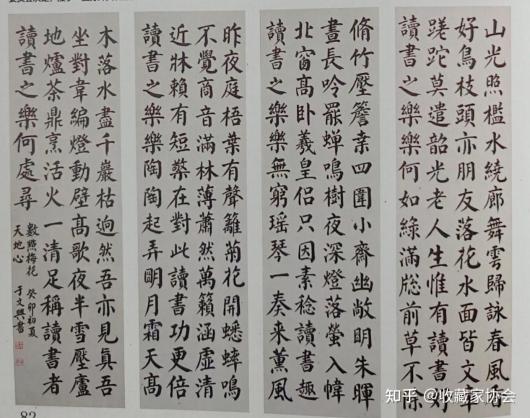 山光照檻水繞廊舞雲歸詠春風香
好鳥枝頭亦朋友落花水面皆文章
蹉跎莫遣韶光老人生惟有讀書好
讀書之樂樂何如綠滿牕前草不除
脩竹壓簷桑四圍小齋幽敞明朱暉
晝長吟罷蟬鳴樹夜深燈落螢入幃
北窗高臥羲皇侶只因素稔讀書趣
讀書之樂樂無窮瑤琴一奏來薰風
昨夜庭梧葉有聲籬菊花開蟋蟀鳴
不覺商音滿林薄蕭然萬籟涵虛清
近牀賴有短檠在對此讀書功更倍
讀書之樂樂陶陶起弄明月霜天高
木落水盡千巖枯迥然吾亦見真吾
坐對韋編燈動壁高歌夜半雪壓廬
地爐茶鼎烹活火一清足稱讀書者
讀書之樂何處尋
數點梅花
天地心
癸卯初夏
于文興書
知乎 @收藏家协会